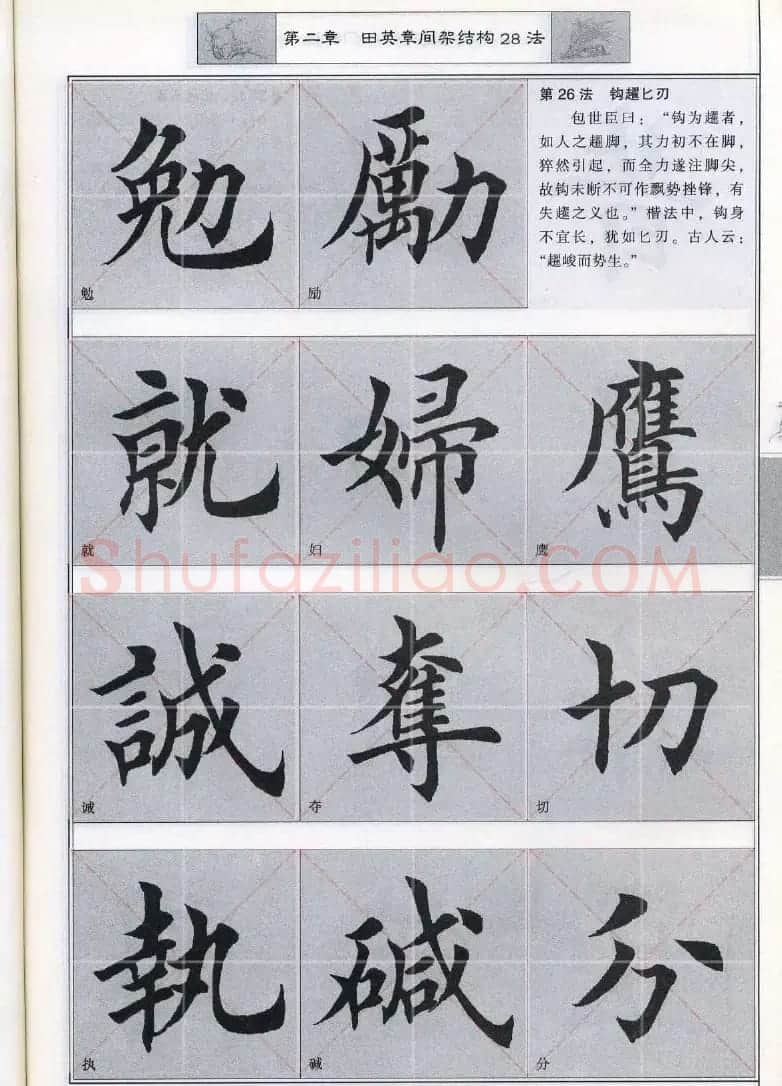 第二章 田英章间架结构28法
第26法 钩趯匕刃
包世臣曰：“钩为趯者，
如人之趯脚，其力初不在脚，
猝然引起，而全力遂注脚尖，
故钩未断不可作飘势挫锋，有
失趯之义也。”楷法中，钩身
不宜长，犹如匕刃。古人云：
“趯峻而势生。”
勉 勵
勉 励
就 婦 鷹
就 妇 鹰
Shufaziliao.COM
誠 奪 切
诚 夺 切
執 碱 分
执 碱 分